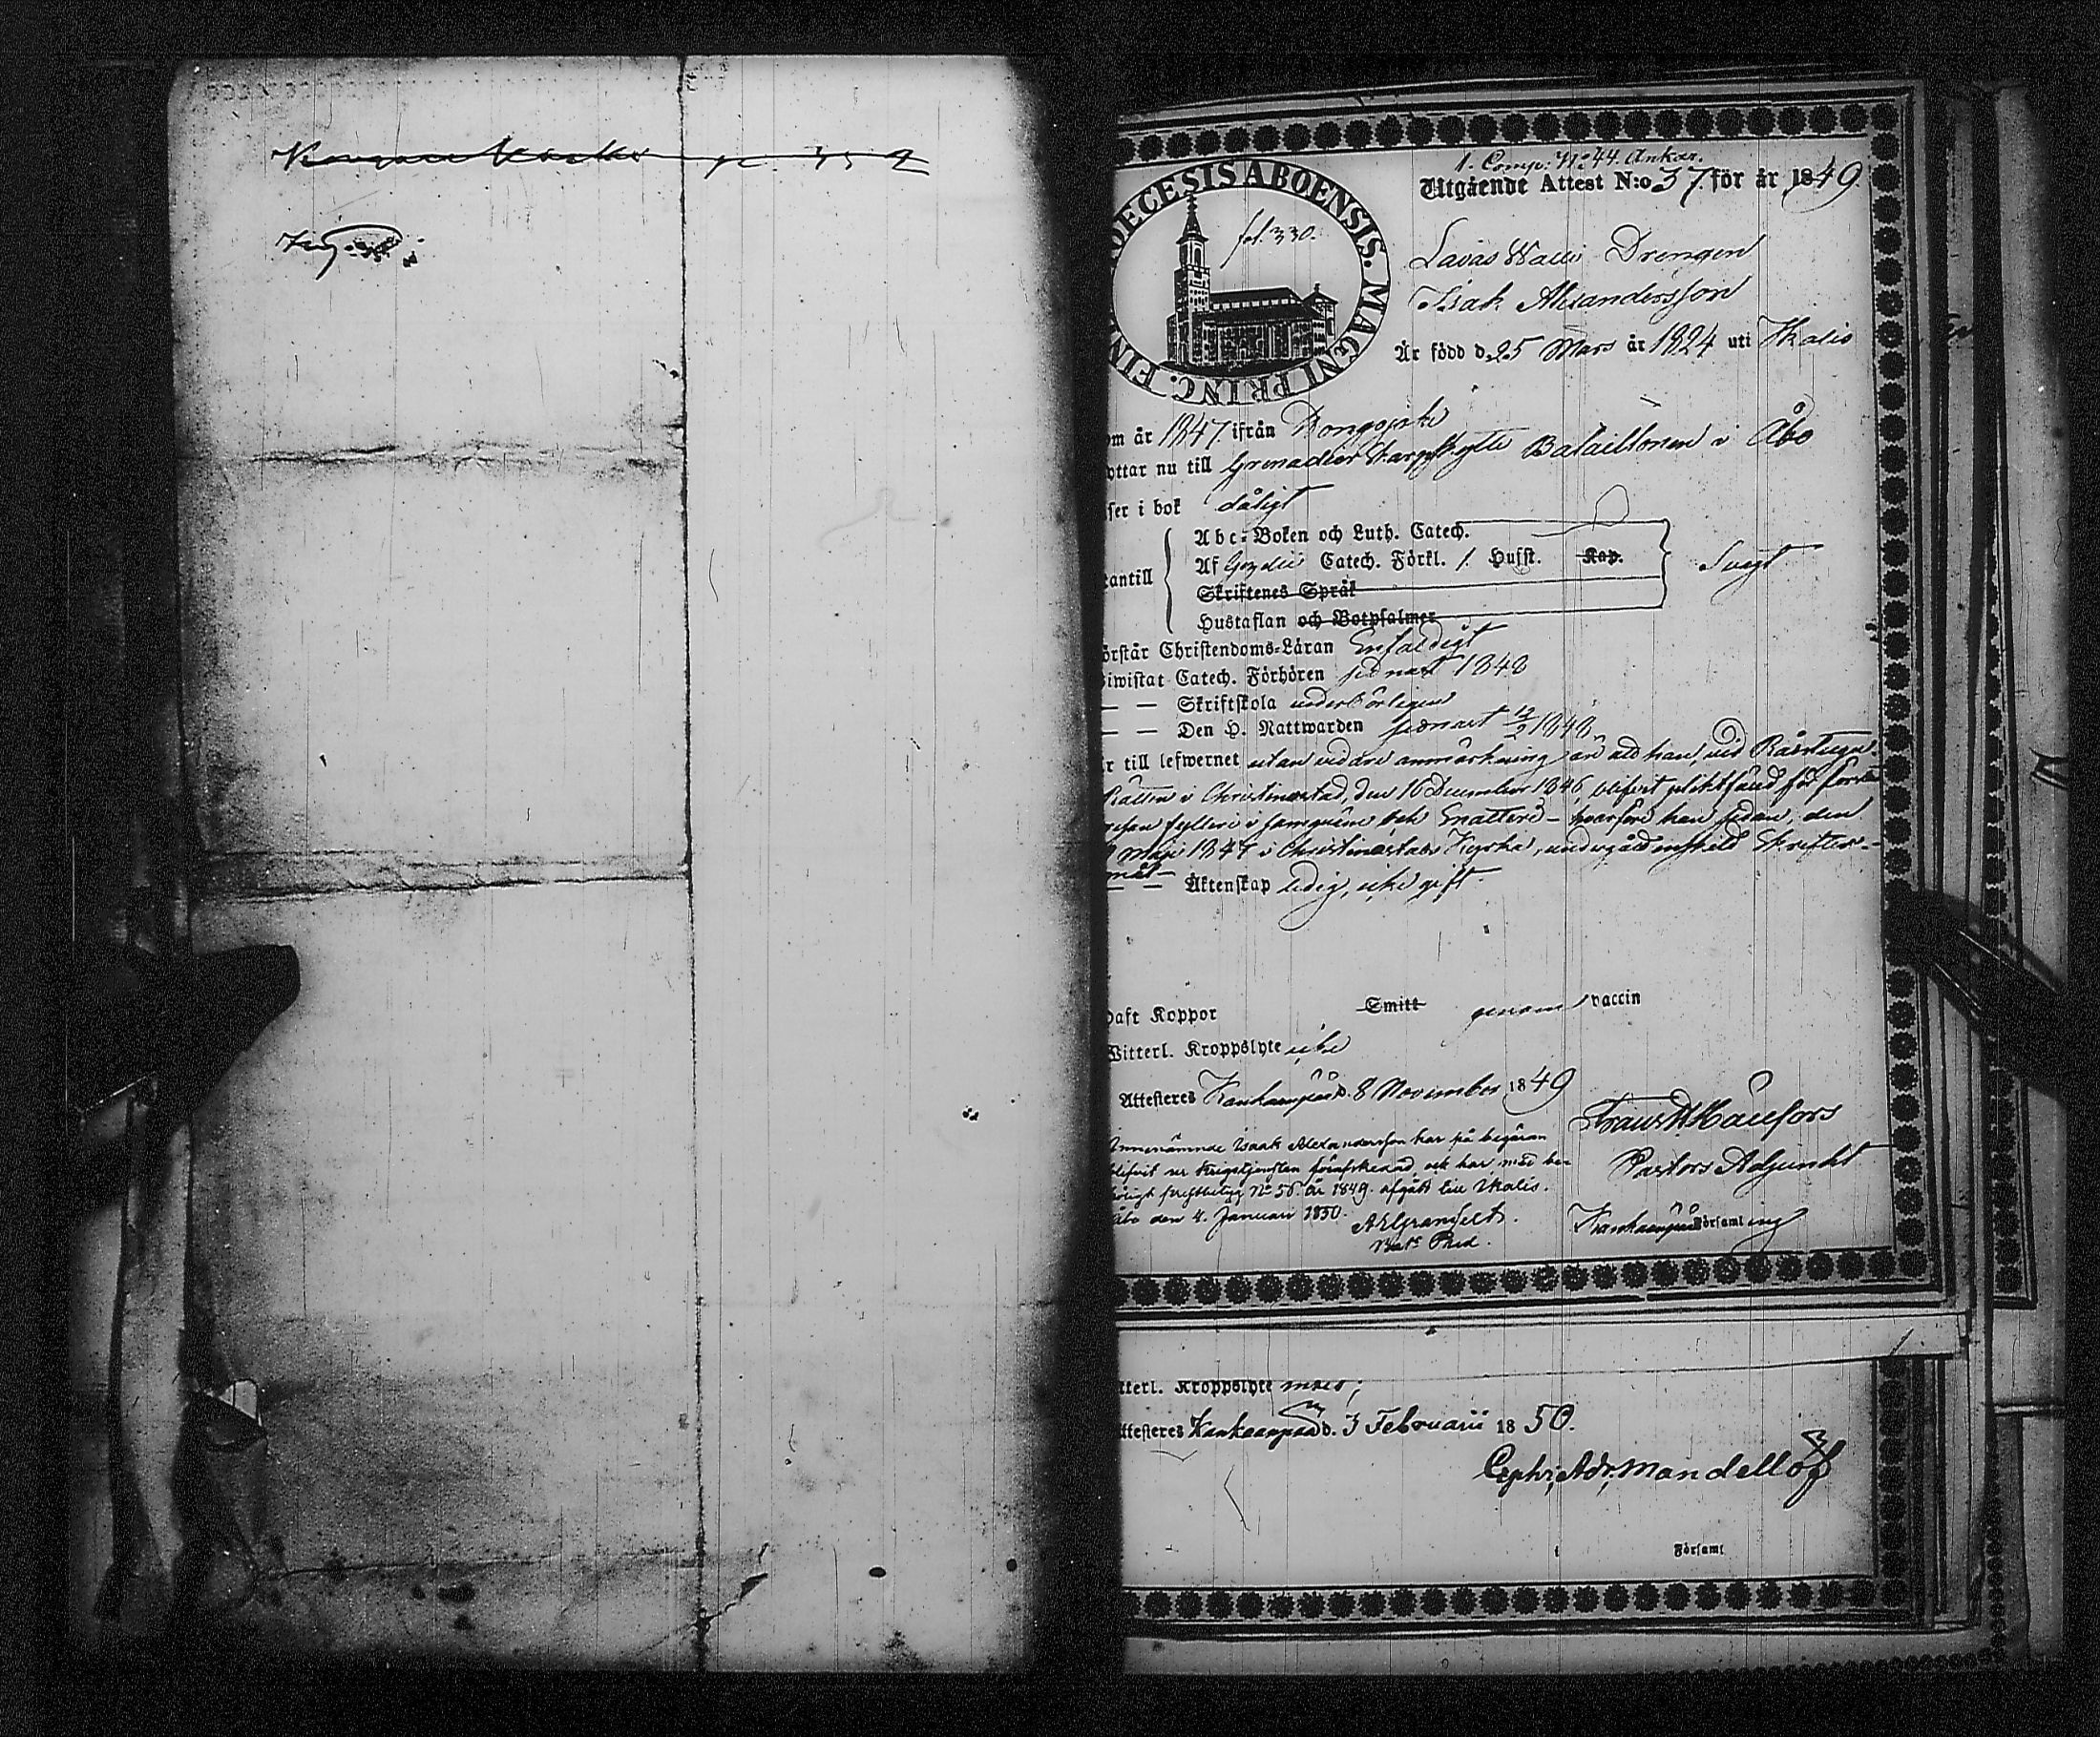 pc. 352
1. Comp: 41: 44. Ankar.
Utgående Attest N:o 37. för år 1849.
DIOECESIS ABOENSIS. MAGNI PRINC. FIN
fol. 330.
Drengen
Isak Alexandersson
Är född d. 25 Mars år 1824 uti Ikalis
om år 1847. ifrån
ottar nu till Grenadier Skarpskytte Bataillonen i Åbo
ser i bok dåligt
Abc-Boken och Luth. Catech.
antill Af Gezelii Catech. Förkl. 1. Hufst. Kap. Svagt
Skriftenes Språk
Hustaflan och Botpsalmer
örstår Christendoms-Läran Enfaldigt
iwistat Catech. Förhören sednast 1848
— — Skriftskola vederbörligen
— — Den H. Nattwarden sednast 12/2 1848.
r till lefwernet utan vidare anmärkning än att han, vid Rådstugu-
Rätten i Christinestad, den 16 December 1846, blifvit pliktfäld för första
resan fylleri i samqväm och Snatteri – hvarföre han sedan, den
Maji 1847 i Christinestads Kyrka, undergått enskild Skrifter-
mål
— — Äktenskap ledig, icke gift.
haft Koppor Smitt genom vaccin
Witterl. Kroppslyte icke
Attesteres Kankaanpää d. 8 November 1849
Frans H. Häufors
Pastors Adjunkt
Kankaanpää Församling
Omnämnde Isaak Alexandersson har på begäran
blifvit ur Krigstjensten förafskedad, och har med be-
hörigt prestbetyg No 56. år 1849. afgått till Ikalis.
Åbo den 4. Januari 1850.
A E Granfelt.
Bat:s Pred.
tterl. Kroppslyte
ttesteres Kankaanpää d. 3 Februarii 1850.
Adr. Mandellöf
i Församl